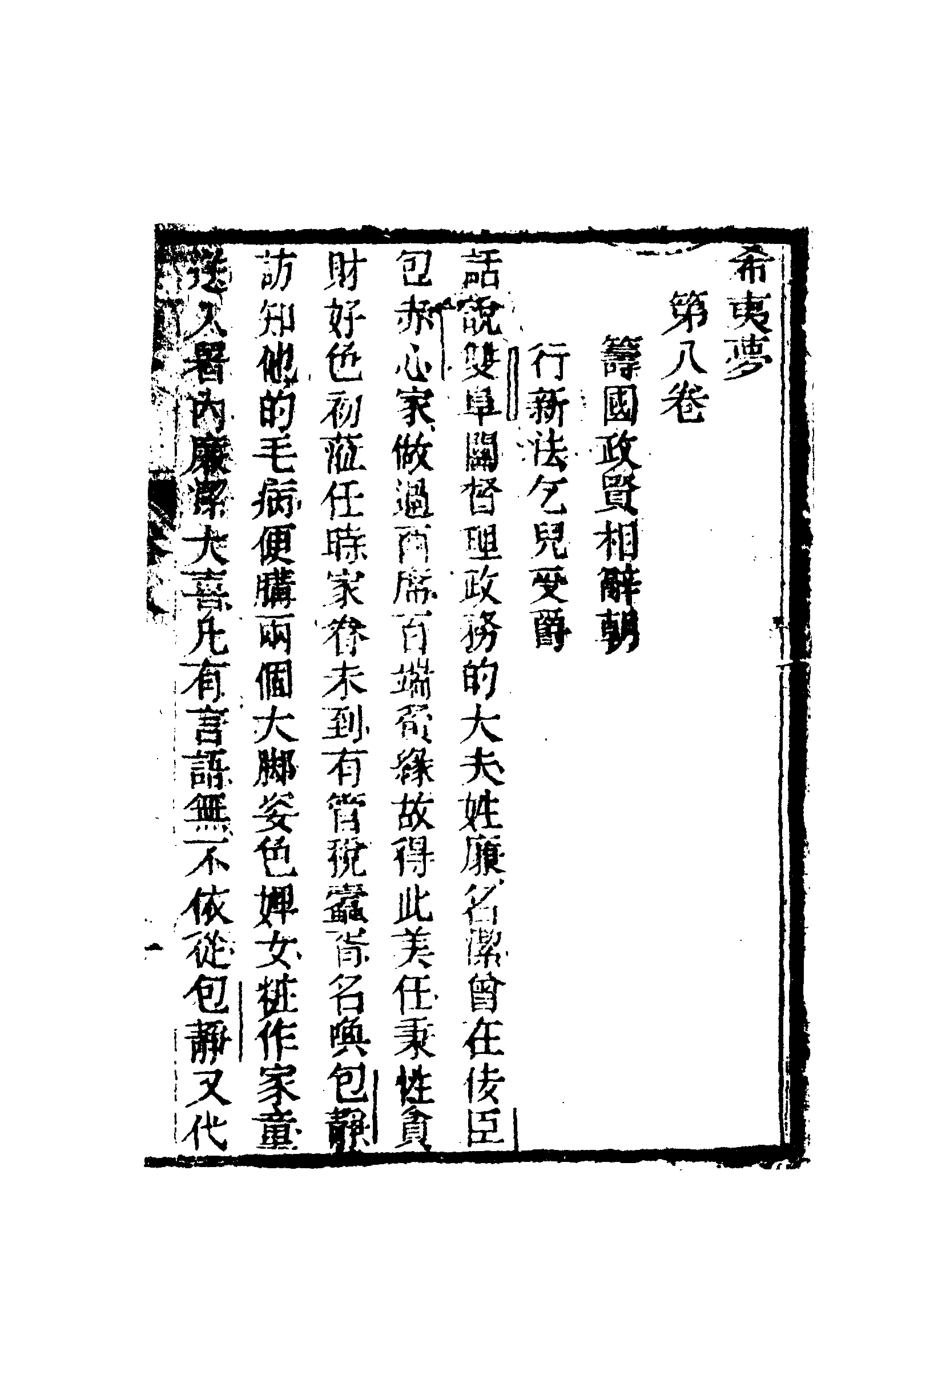 希夷夢
第八卷
籌國政賢相辭朝
行新法乞兒受爵
話說雙阜關督理政務的大夫姓廉名潔曾在佞臣
包赤心家做過西席百端夤緣故得此美任秉性貪
財好色初蒞任時家眷未到有管稅蠹胥名喚包靜
訪知他的毛病便購兩個大脚姿色婢女粧作家童
送入署內廉潔大喜凡有言語無不依從包靜又代